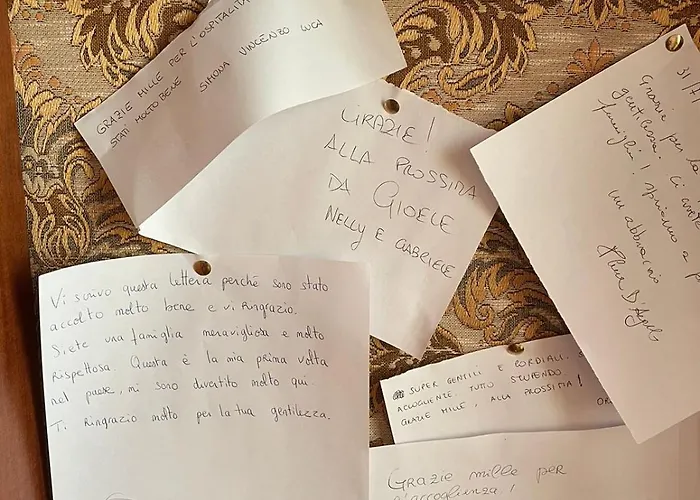 GRAZIE MILLE PER L'OSPITALITÀ
STATI MOLTO BENE SIMONA VINCENZO LUCA
GRAZIE!
ALLA PROSSIMA
DA GIOELE
NELLY E GABRIELE
31/7
Grazie per la
gentilezza. Ci
famiglia! Speriamo a
un abbraccio
D'Angelo
Vi scrivo questa lettera perché sono stato
accolto molto bene e vi ringrazio.
Siete una famiglia meravigliosa e molto
rispettosa. Questa è la mia prima volta
nel paese, mi sono divertito molto qui.
Ti Ringrazio molto per la tua gentilezza.
SUPER GENTILI E CORDIALI. S
ACCOGLIENZE. TUTTO STUPENDO.
GRAZIE MILLE, ALLA PROSSIMA!
OR
Grazie mille per
l'accoglienza!